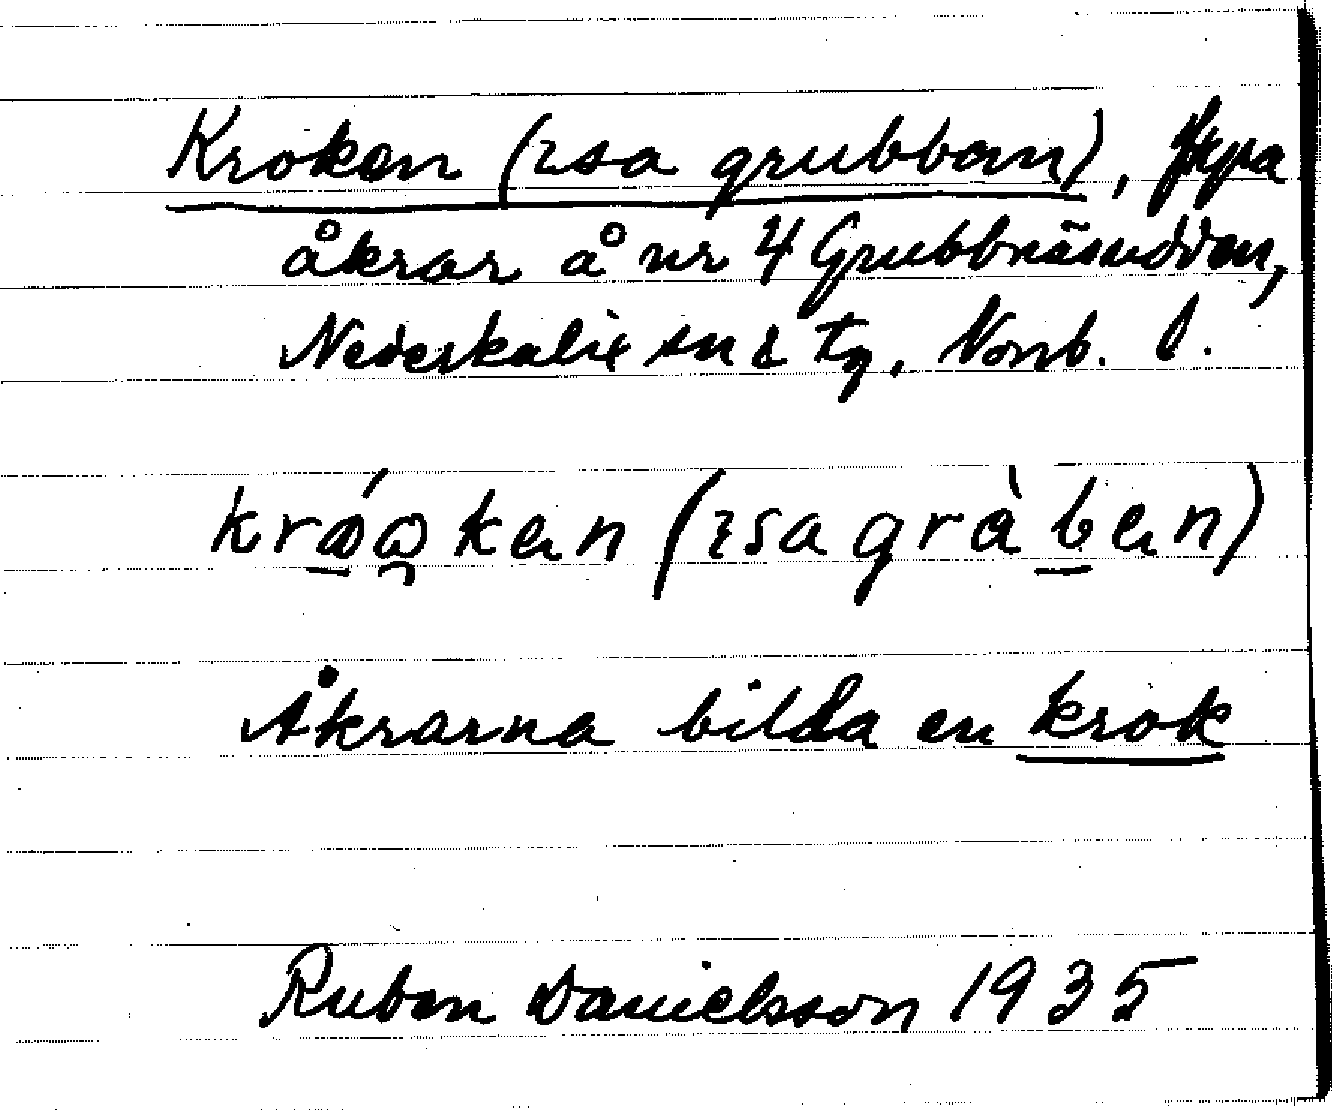 Kroken (ɿsa grubban), fyra
åkrar å nr 4 Grubbnäsudden,
Nederkalix sn & tg, Norrb. l.
króoken (ɿsa gràben)
Åkrarna bilda en krok
Ruben Danielsson 1935